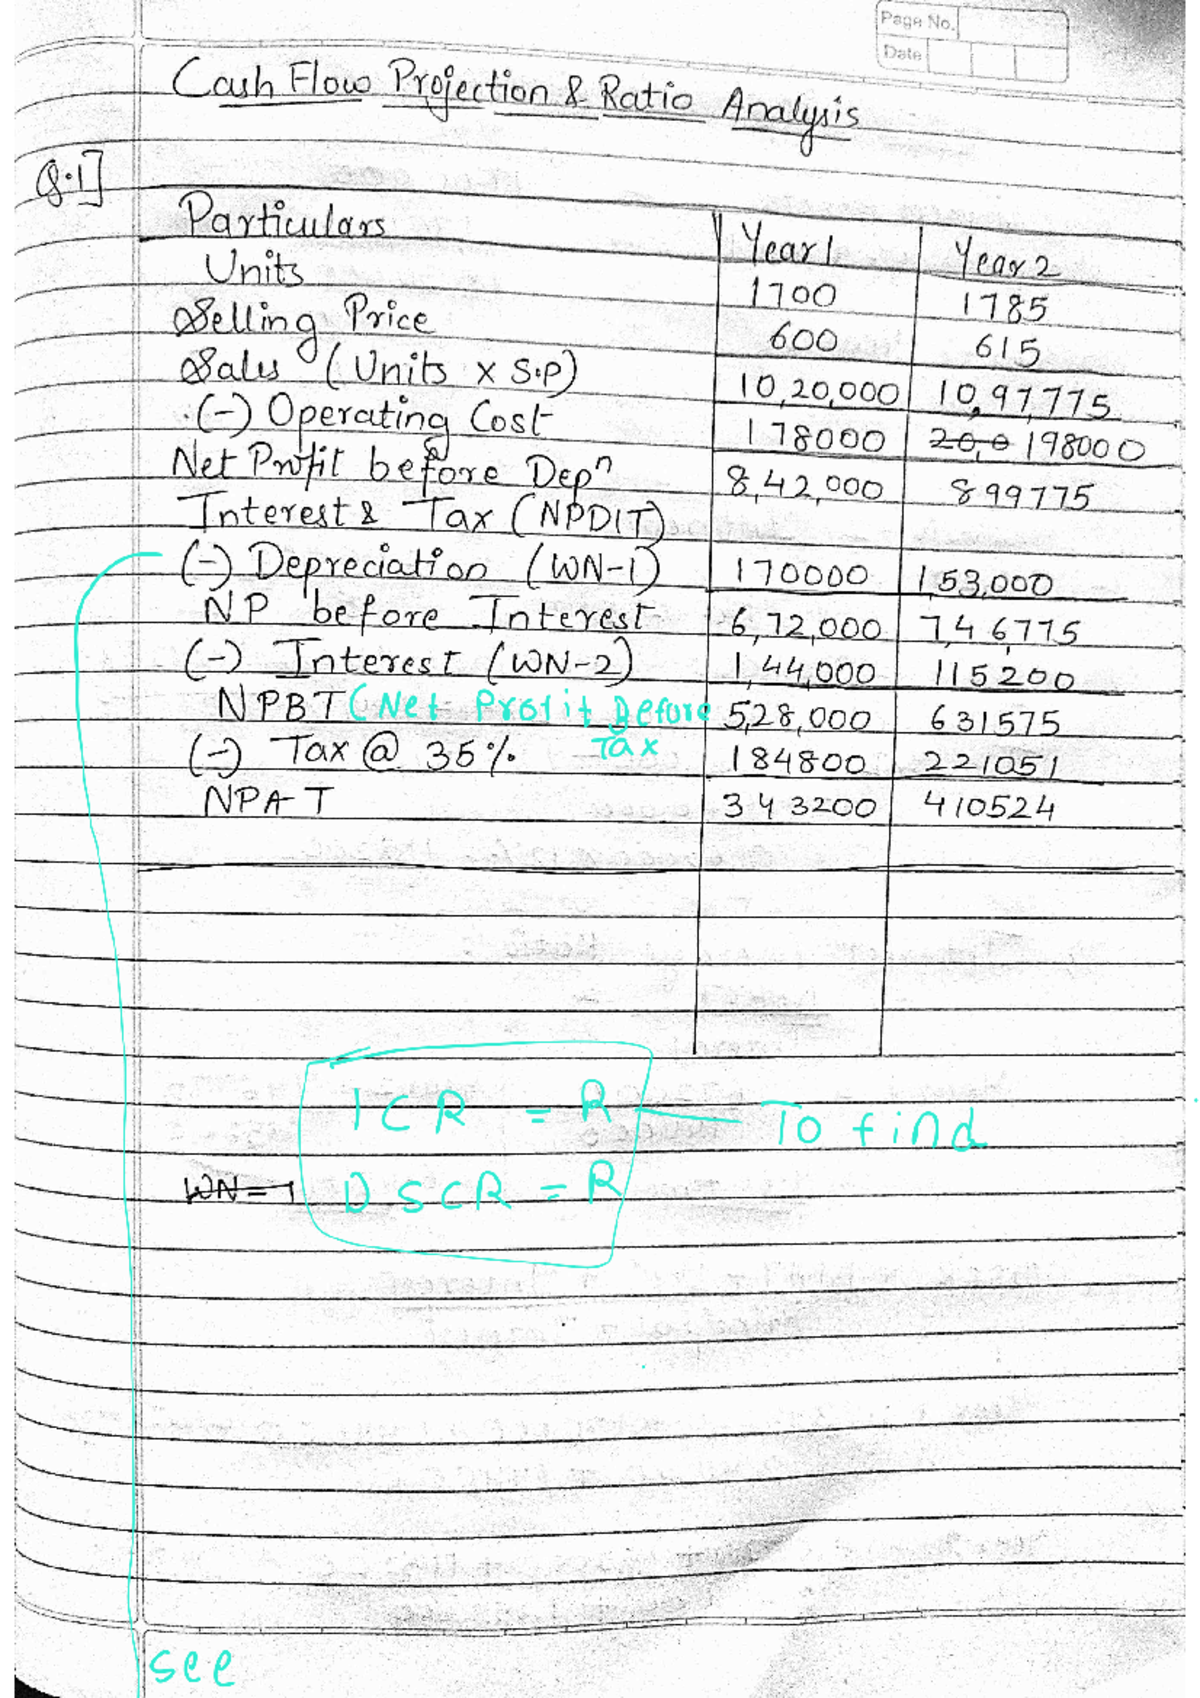 Page No.
Date
Cash Flow Projection & Ratio Analysis
Q.1]
Particulars Year 1 Year 2
Units 1700 1785
Selling Price 600 615
Sales (Units x S.P) 10,20,000 10,97,775
(-) Operating Cost 178000 20,0 198000
Net Profit before Depn 8,42,000 899775
Interest & Tax (NPDIT)
(-) Depreciation (WN-1) 170000 1,53,000
NP before Interest 6,72,000 7,46775
(-) Interest (WN-2) 1,44,000 115200
NPBT (Net Profit Before 5,28,000 631575
Tax
(-) Tax @ 35% 184800 221051
NPAT 343200 410524
ICR = R To find
WN-1 DSCR = R
see